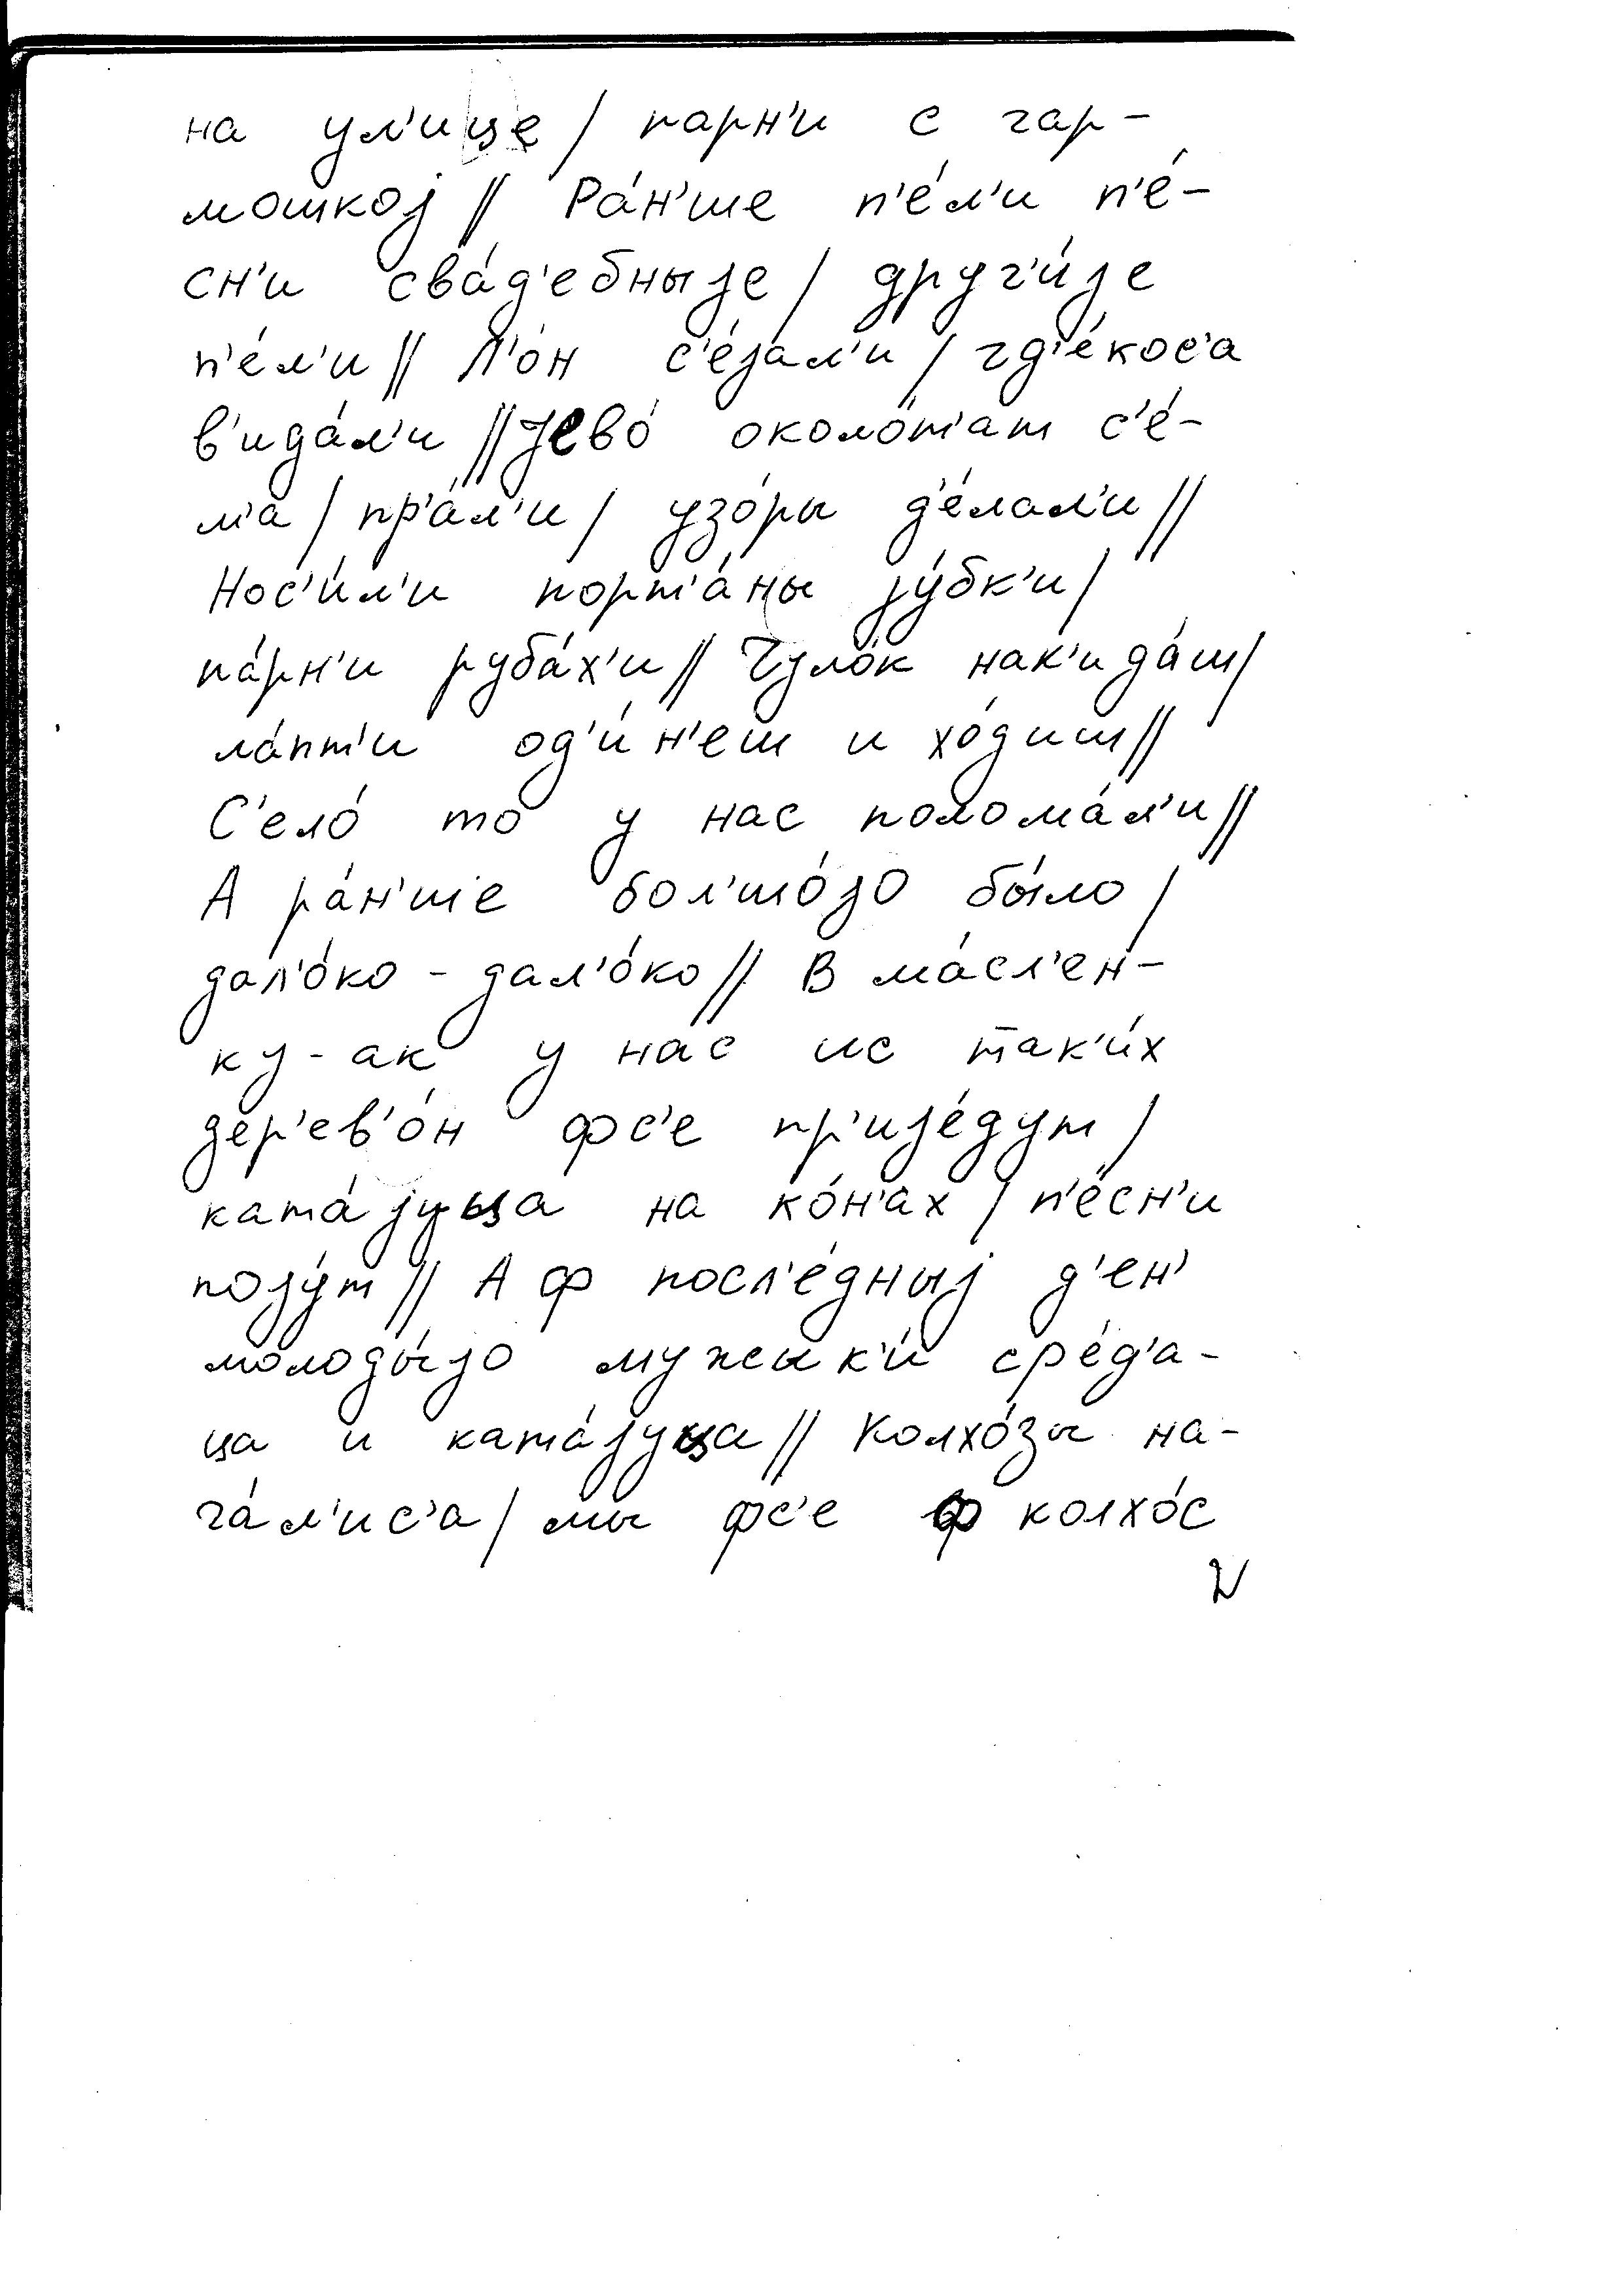 на ул'ице / парн'и с гар-
мошкој // Ра́н'ше п'е́л'и п'е́-
сн'и сва́д'ебныје / друг'и́је
п'е́л'и // Л'о́н с'е́јал'и / гд'е́кос'а
в'ида́л'и // Јево́ околот'ат с'е́-
м'а / пр'а́л'и / узо́ры д'е́лал'и //
Нос'и́л'и порт'а́ны јубк'и /
па́рн'и руба́х'и // Чуло́к нак'ида́ш /
ла́пт'и од'и́н'еш и хо́диш //
С'ело́ то у нас полома́л'и //
А ра́н'ше бол'шо́јо бы́ло /
дал'о́ко - дал'о́ко // В ма́сл'ен-
ку - ак у нас ис так'и́х
дер'ев'о́н фс'е пр'ије́дут /
ката́јуца на ко́н'ах / п'е́сн'и
појут // А ф посл'е́дныј д'ен'
молоды́јо мужык'и́ сре́д'а-
ца и ката́јуца // Колхо́зы на-
ча́л'ис'а / мы фс'е ф колхо́с